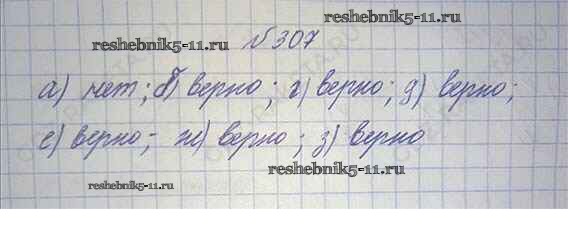 reshebnik5-11.ru
№ 307
reshebnik5-11.ru
а) нет; б) верно; г) верно; д) верно;
е) верно; ж) верно; з) верно
reshebnik5-11.ru
reshebnik5-11.ru